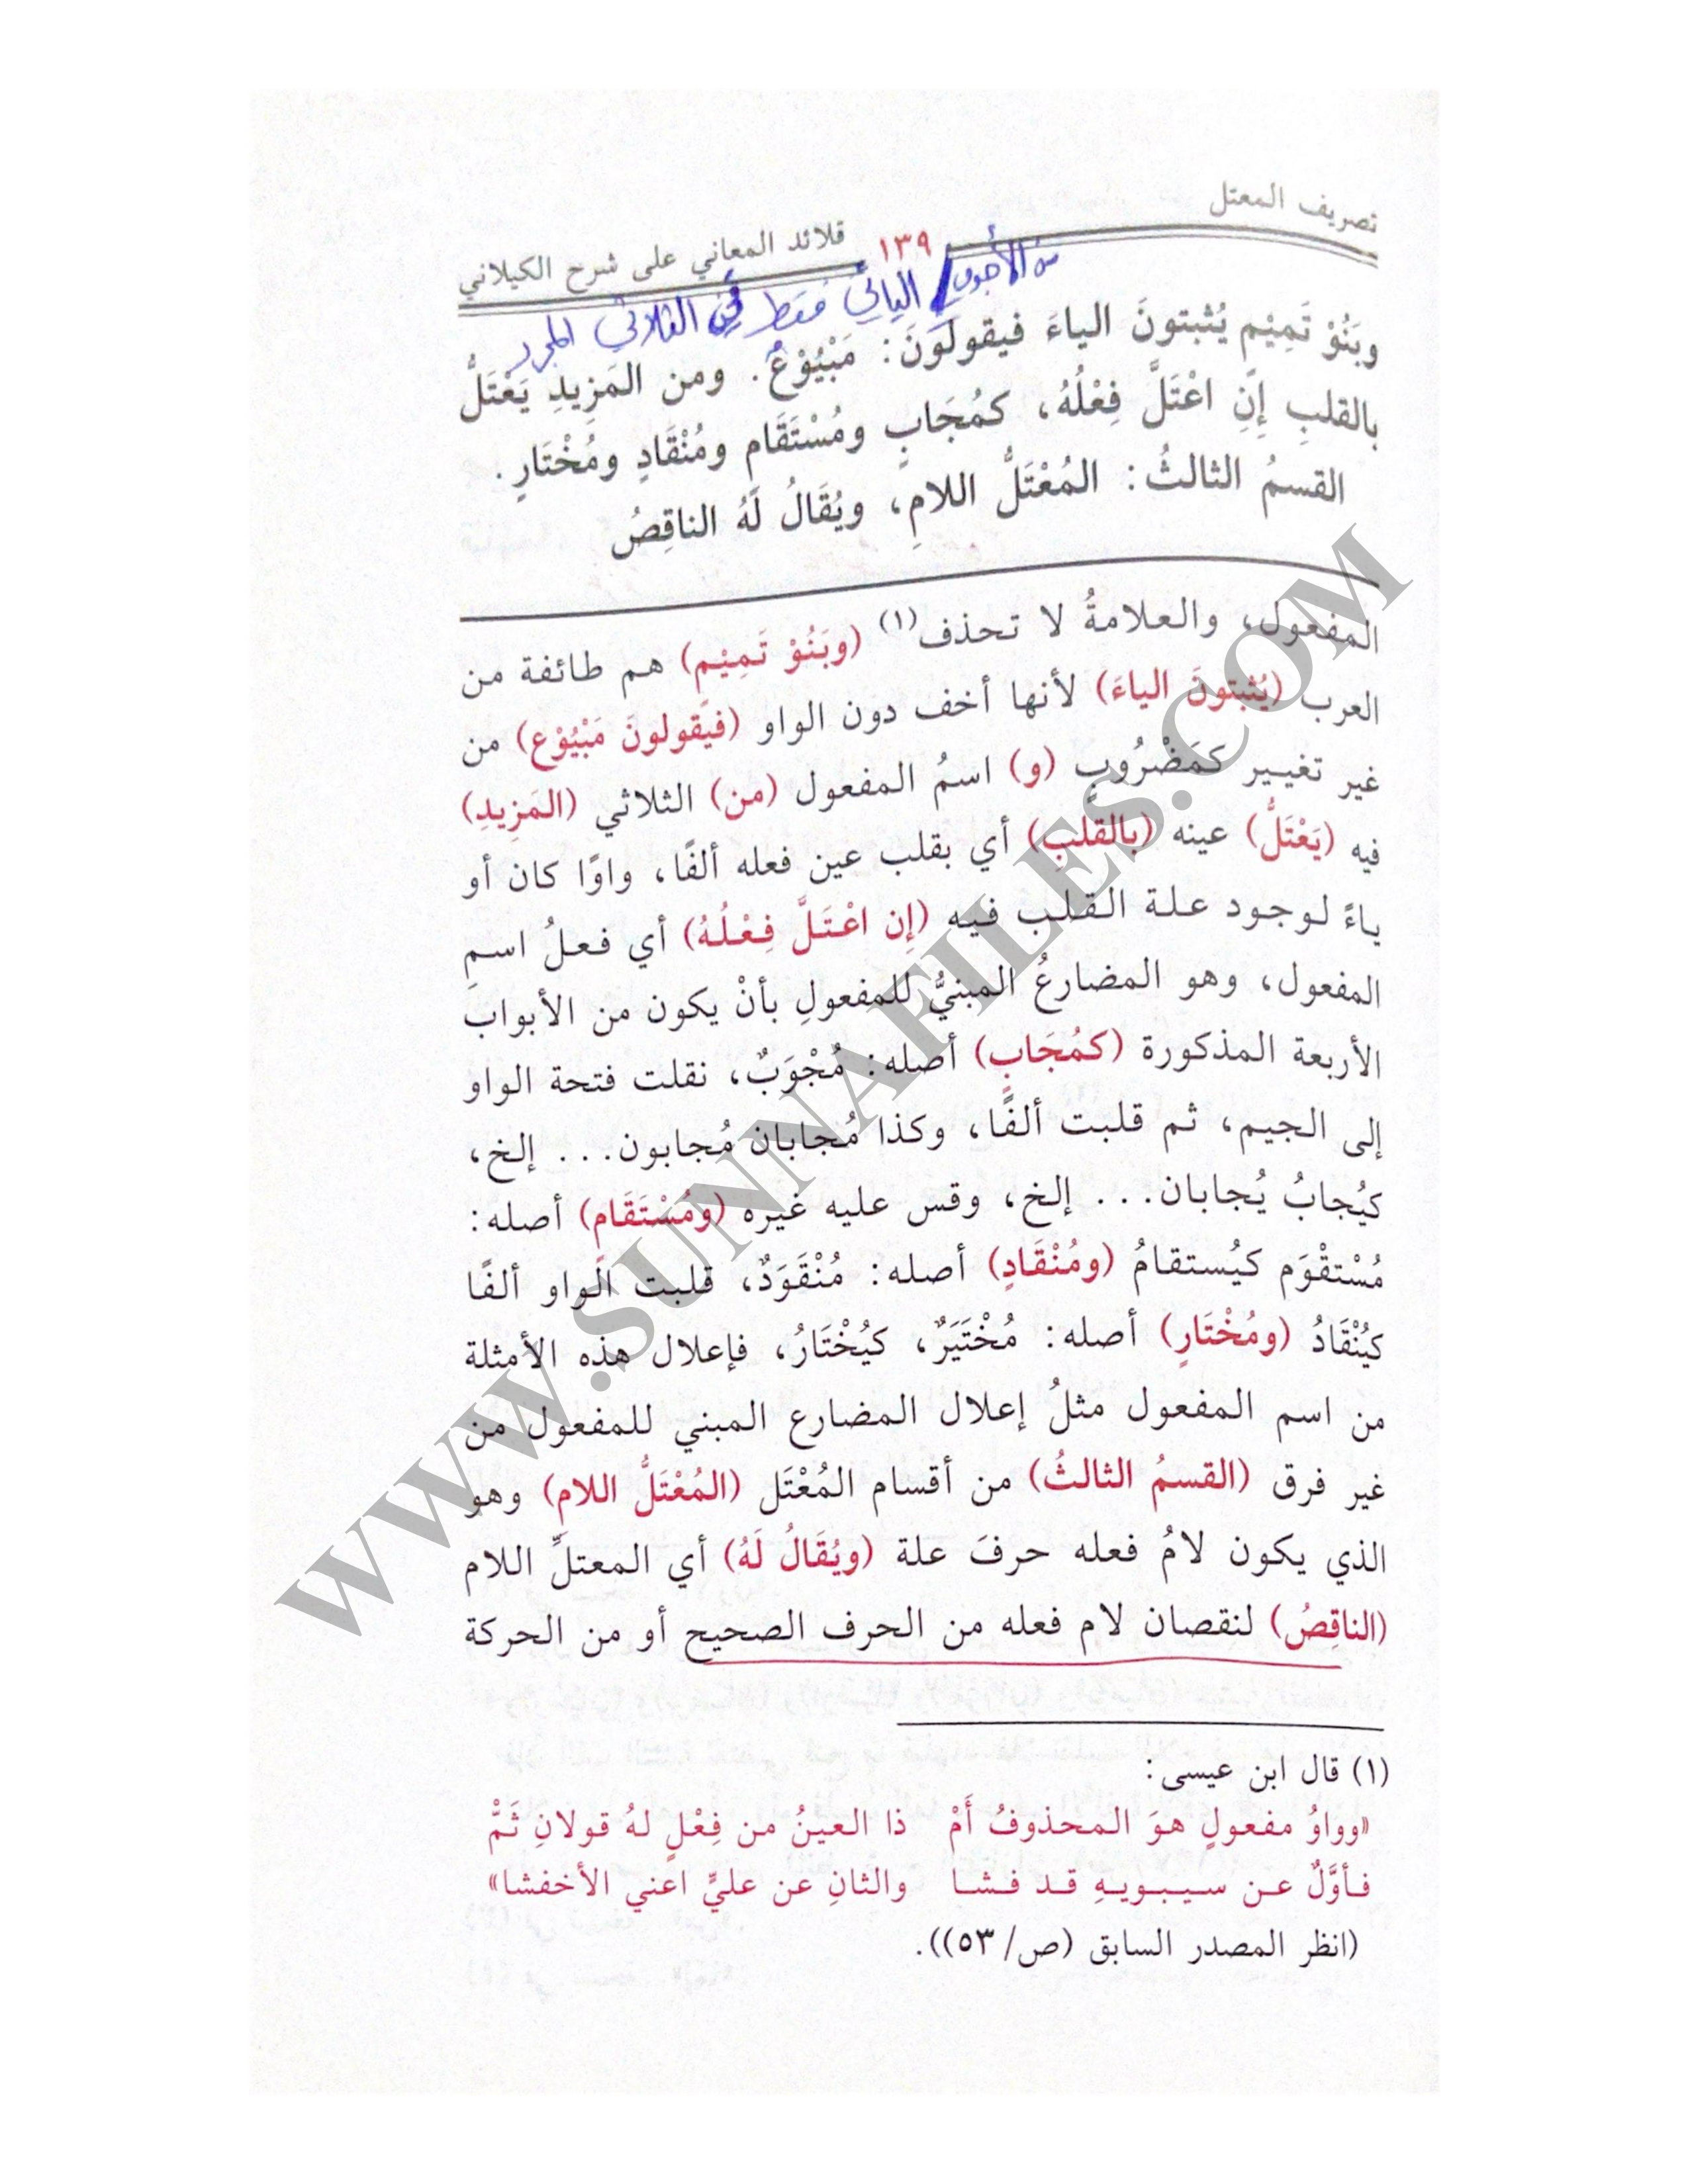 تصريف المعتل
١٣٩
قلائد المعاني على شرح الكيلاني
من الأجوف اليائي فقط في الثلاثي المجرد
وبَنُوْ تَمِيْمٍ يُثبتونَ الياءَ فيقولَوْنَ: مَبْيُوْعٌ. ومن المَزِيدِ يَعْتَلُّ
بالقلبِ إِنِ اعْتَلَّ فِعْلُهُ، كمُجَابٍ ومُسْتَقَامٍ ومُنْقَادٍ ومُخْتَارٍ.
القسمُ الثالثُ: المُعْتَلُّ اللامِ، ويُقَالُ لَهُ الناقِصُ
المفعول، والعلامةُ لا تحذف(١) (وبَنُوْ تَمِيْمٍ) هم طائفة من
العرب (يُثبتونَ الياءَ) لأنها أخف دون الواو (فيَقولونَ مَبْيُوْع) من
غير تغيير كمَضْرُوبٍ (و) اسمُ المفعول (من) الثلاثي (المَزِيدِ)
فيه (يَعْتَلُّ) عينه (بالقلبِ) أي بقلب عين فعله ألفًا، واوًا كان أو
ياءً لوجود علة القلب فيه (إِن اعْتَلَّ فِعْلُهُ) أي فعلُ اسمِ
المفعول، وهو المضارعُ المبنيُّ للمفعولِ بأنْ يكون من الأبواب
الأربعة المذكورة (كمُجَابٍ) أصله: مُجْوَبٌ، نقلت فتحة الواو
إلى الجيم، ثم قلبت ألفًا، وكذا مُجابان مُجابون... إلخ،
كيُجابُ يُجابان... إلخ، وقس عليه غيره (ومُسْتَقَامٍ) أصله:
مُسْتقْوَم كيُستقامُ (ومُنْقَادٍ) أصله: مُنْقَوَدٌ، قلبت الواو ألفًا
كيُنْقَادُ (ومُخْتَارٍ) أصله: مُخْتَيَرٌ، كيُخْتَارُ، فإعلال هذه الأمثلة
من اسم المفعول مثلُ إعلال المضارع المبني للمفعول من
غير فرق (القسمُ الثالثُ) من أقسام المُعْتَل (المُعْتَلُّ اللامِ) وهو
الذي يكون لامُ فعله حرفَ علة (ويُقَالُ لَهُ) أي المعتلِّ اللام
(الناقِصُ) لنقصان لام فعله من الحرف الصحيح أو من الحركة
(١) قال ابن عيسى:
«وواوُ مفعولٍ هوَ المحذوفُ أَمْ ذا العينُ من فِعْلٍ لهُ قولانِ ثَمّْ
فأوَّلٌ عن سيبويهِ قد فشا والثانِ عن عليٍّ اعني الأخفشا»
(انظر المصدر السابق (ص/ ٥٣)).
WWW.SUNNAFILES.COM